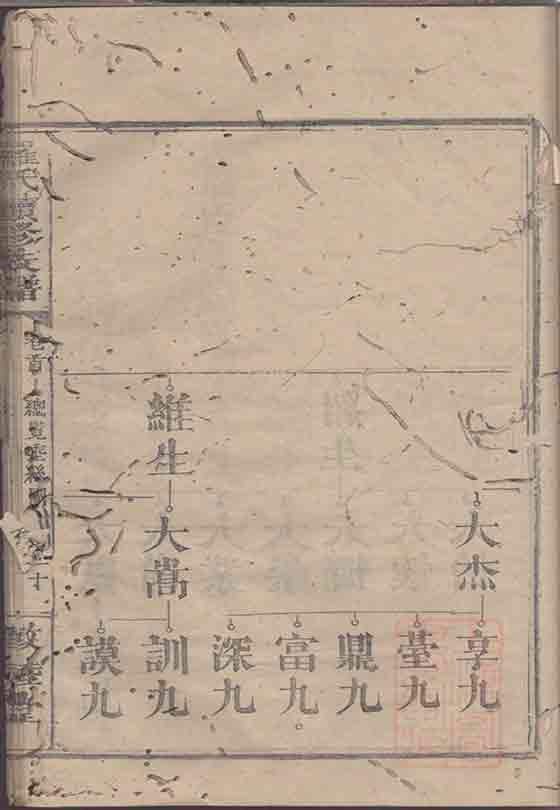 大杰
亨九
臺九
鼎九
富九
深九
維生
大嵩
訓九
謨九
羅氏續修族譜
卷首
總覽垂絲圖
敦睦堂